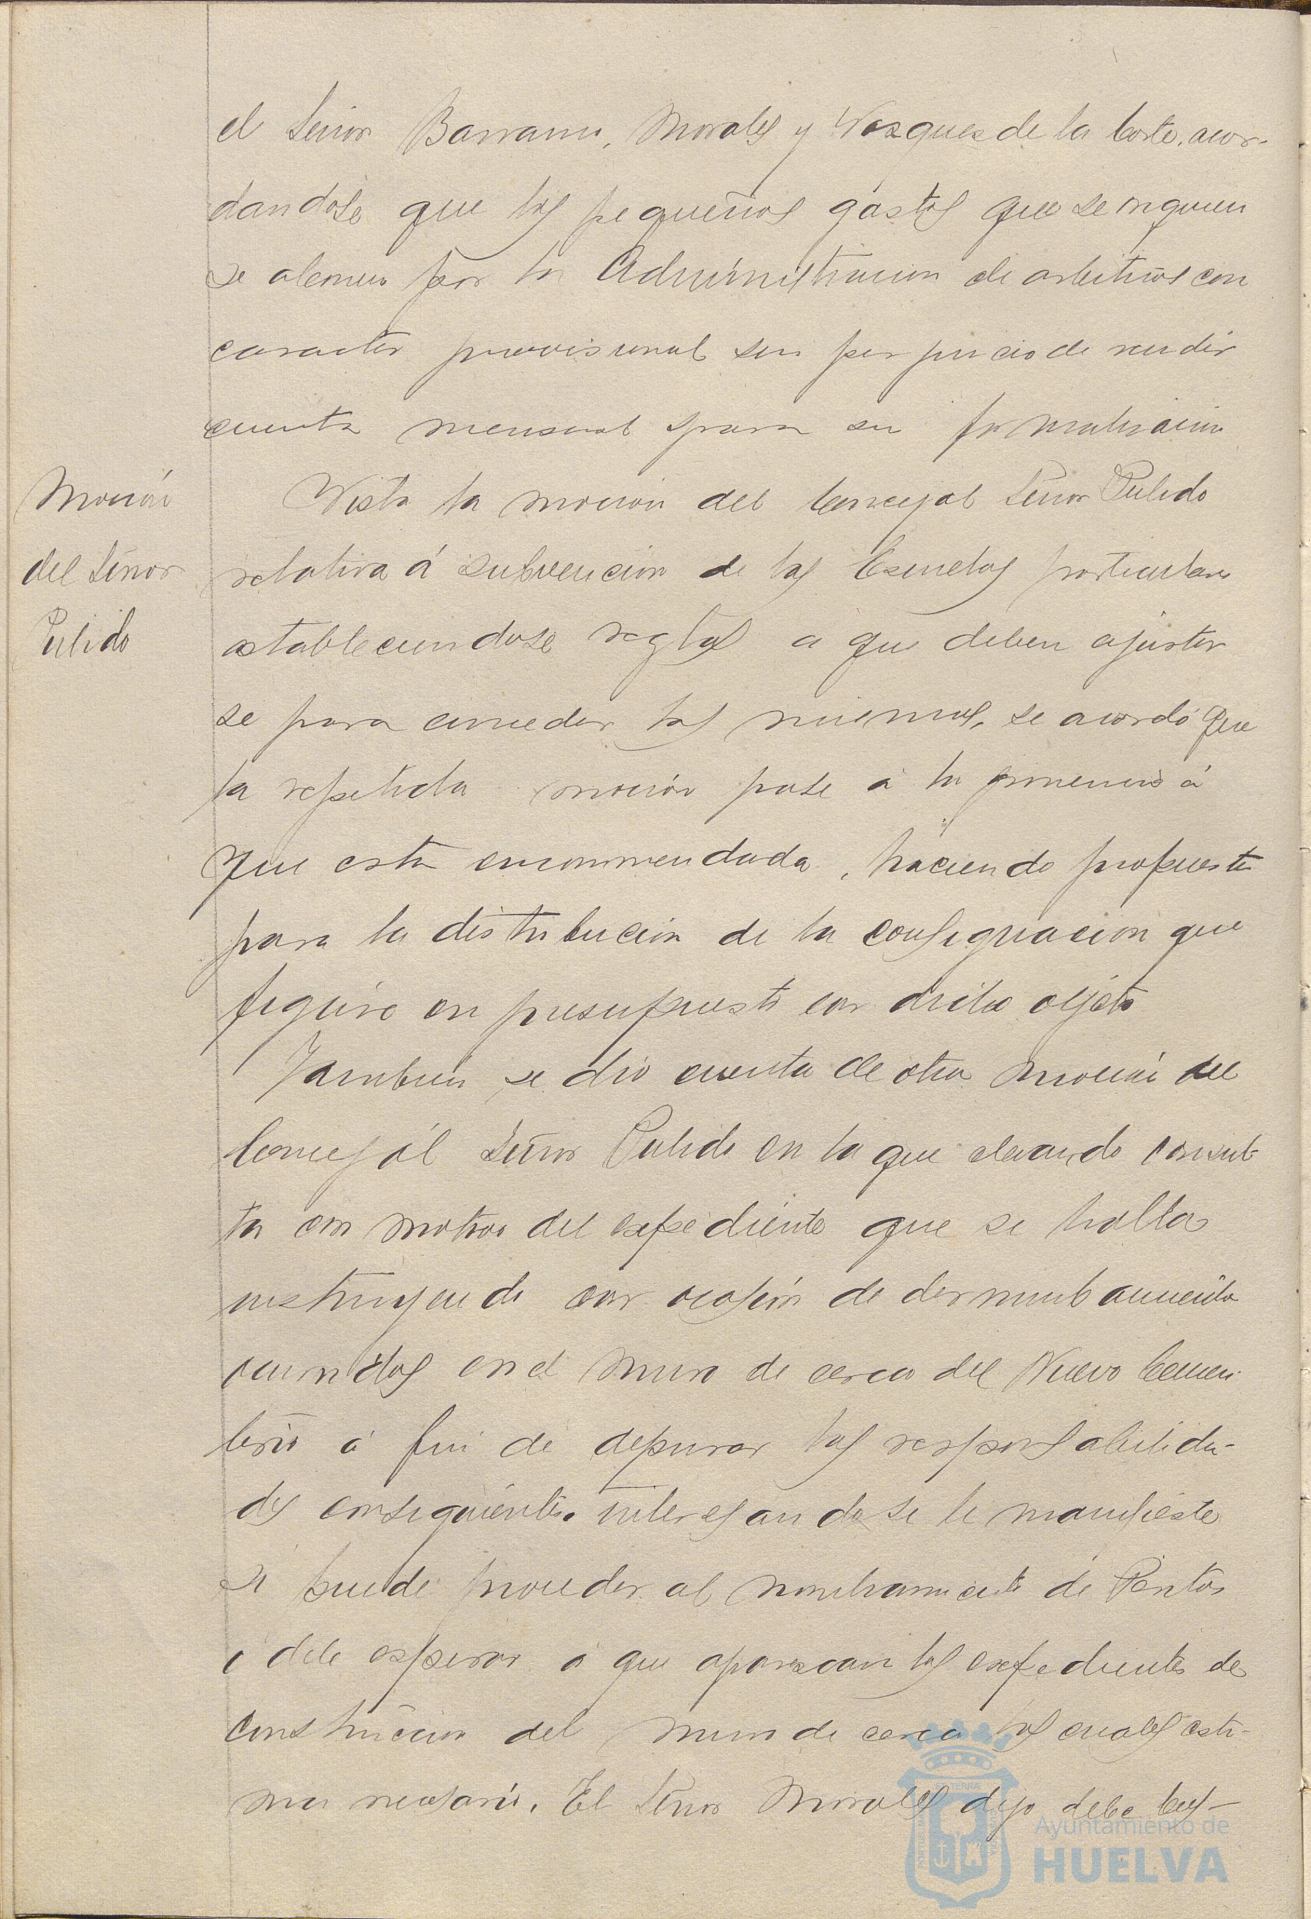 el Señor Barranco, Morales y Vazquez de la Corte, acor-
dandose que los pequeños gastos que se originen
se abonen por la Administracion de arbitrios con
caracter provisional sin perjuicio de rendir
cuenta mensual para su formalizacion
Moción
del Señor
Pulido
Vista la mocion del Concejal Señor Pulido
relativa á subvencion de las Escuelas particulares
estableciendose reglas a que deben ajustar
se para conceder las mismas, se acordó que
la repetida moción pase á la ponencia á
que esta encommendada, haciendo propuesta
para la distribucion de la consignacion que
figura en presupuesto con dicho objeto
Tambien se dio cuenta de otra moción del
Concejál Señor Pulido en la que elevando consul-
ta con motivo del expediente que se halla
instruyendo con ocasión de derrumbamiento
ocurridos en el muro de cerca del Nuevo Cemen-
terio á fin de depurar las responsabilida-
des consiguientes interesandose le manifieste
si puede proceder al nombramiento de Peritos
ó debe esperar a que aparezcan los expedientes de
construccion del muro de cerca los cuales esti-
ma necesario. El Señor Morales dijo debe bus-
Ayuntamiento de
HUELVA